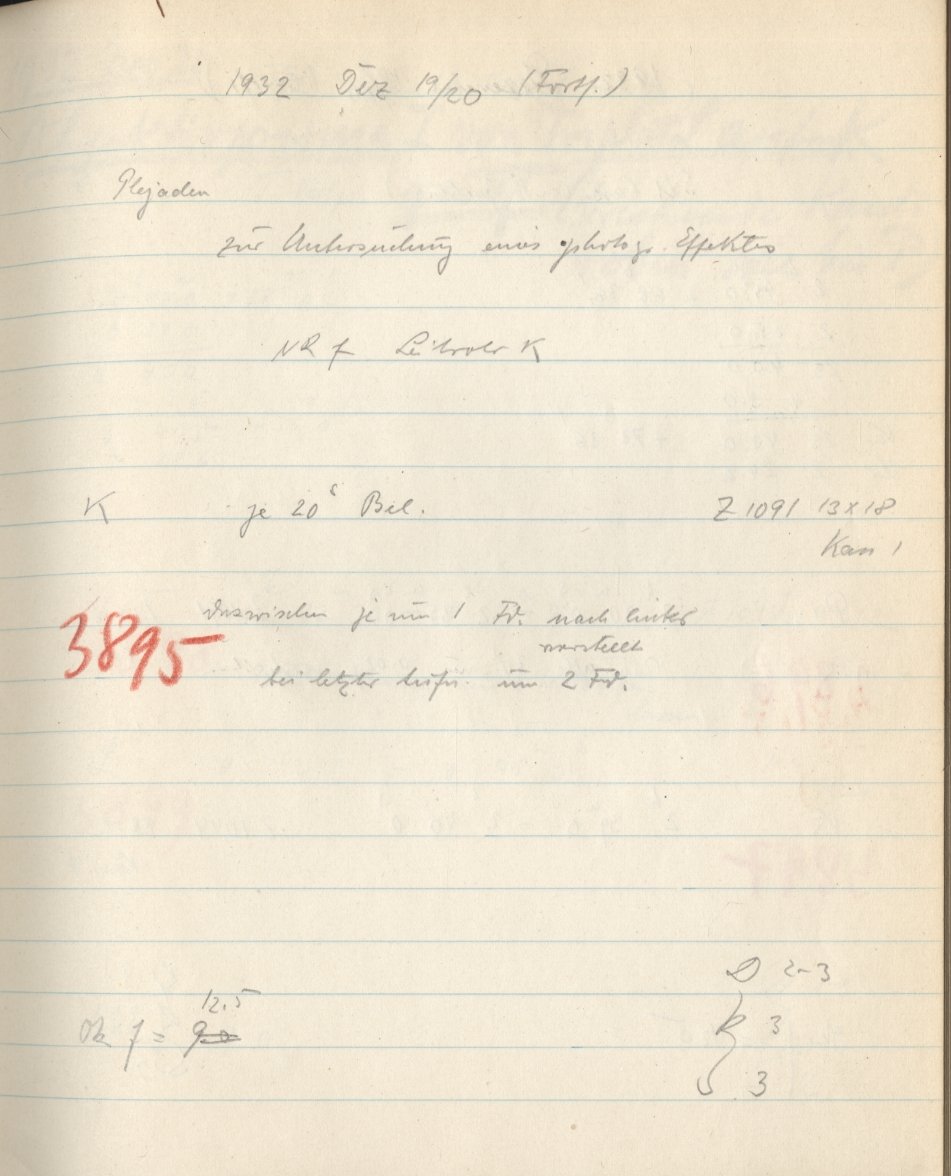 1932 Dez 19/20 (Forts.)
Plejaden
zur Untersuchung eines photogr. Effektes
f Leitrohr K
K je 20ˢ Bel. Z 1091 13x18
Kass 1
dazwischen je um 1 Fd. nach links
verstellt
bei letzter Aufn. um 2 Fd.
3895
D 2-3
12.5
Ok f = 90
R 3
S 3